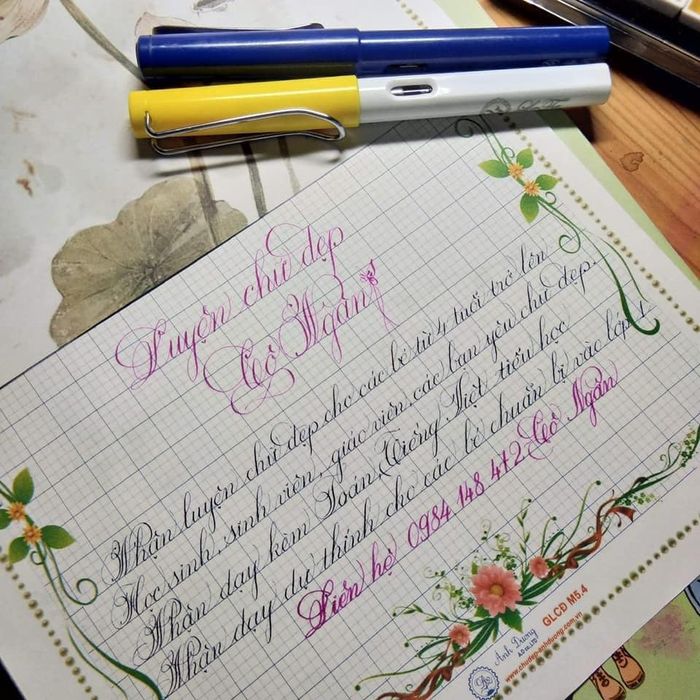 Luyện chữ đẹp
Cô Ngân
Nhận luyện chữ đẹp cho các bé từ 4 tuổi trở lên
Học sinh, sinh viên, giáo viên, các bạn yêu chữ đẹp.
Nhận dạy kèm Toán, Tiếng Việt tiểu học
Nhận dạy dự thính cho các bé chuẩn bị vào lớp 1
Liên hệ 0984 148 472 Cô Ngân
Ánh Dương
GLCD M5.4
www.chudep-anhduong.com.vn